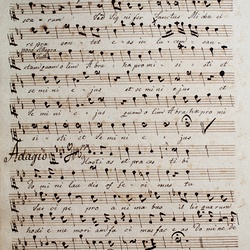 rum Sed Sig ni fer Sanctus Mi cha el
re prae sen tet e as in lu cem san
ctam quam o lim A bra hae pro mi si sti et
se mi ni e jus et se mi ni e jus
quam o lim A bra hae pro mi
si sti et se mi ni e jus
Adagio Hosti as et pre ces ti bi
Do mi ne lau dis of fe ri mus tu
sus ci pe pro a ni ma bus il lis qua rum
hodi e me mo ri am fa ci mus fac e as Do mi ne de